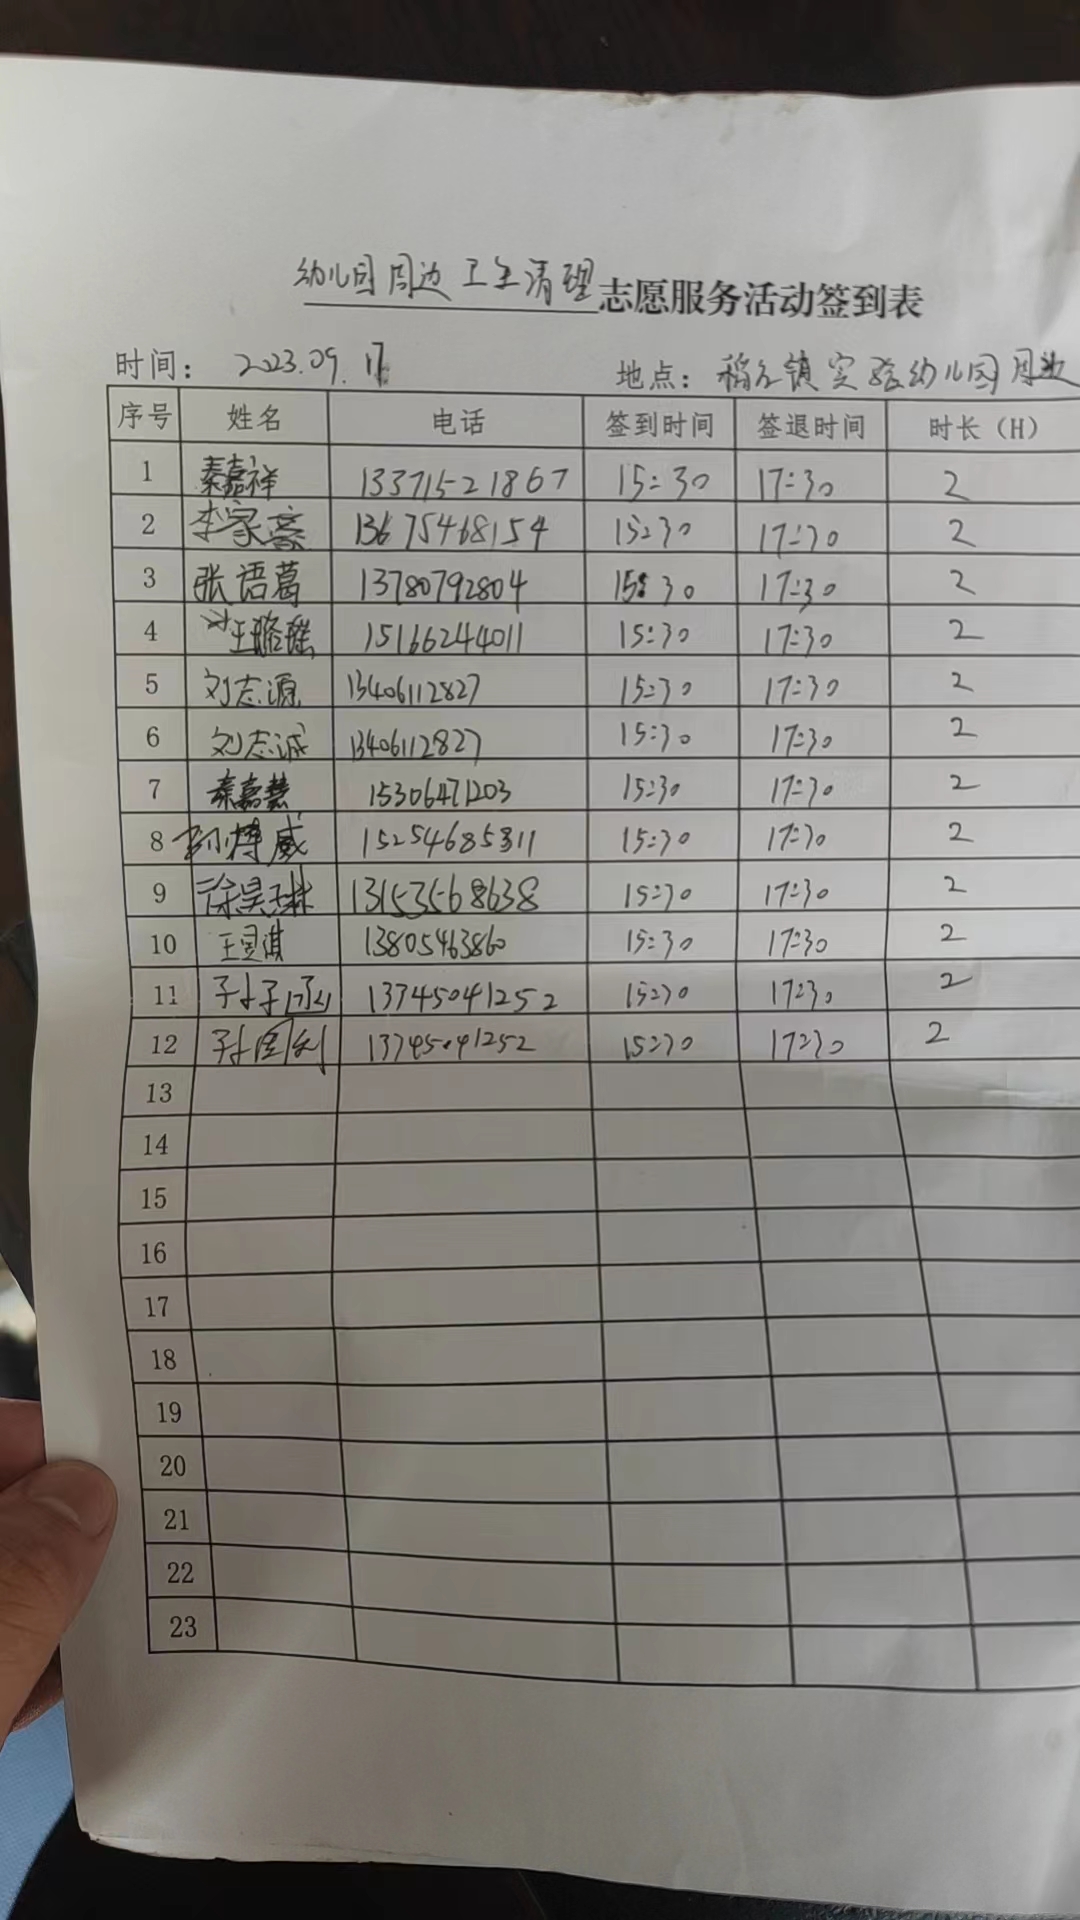 幼儿园周边卫生清理志愿服务活动签到表
时间： 2023.09. 地点：稻庄镇实验幼儿园周边
序号 姓名 电话 签到时间 签退时间 时长（H）
1 秦嘉祥 13371521867 15:30 17:30 2
2 李家豪 13675468154 15:30 17:30 2
3 张语葛 13780792804 15:30 17:30 2
4 15166244011 15:30 17:30 2
5 刘志源 13406112827 15:30 17:30 2
6 刘志诚 13406112827 15:30 17:30 2
7 秦嘉慧 15306471203 15:30 17:30 2
8 威 15254685311 15:30 17:30 2
9 徐昊琳 13153568638 15:30 17:30 2
10 王昱淇 13805463860 15:30 17:30 2
11 孙子 13745041252 15:30 17:30 2
12 孙国利 13745041252 15:30 17:30 2
13
14
15
16
17
18
19
20
21
22
23